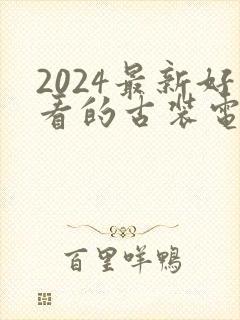 2024最新好
看的古装電
百里咩鴨